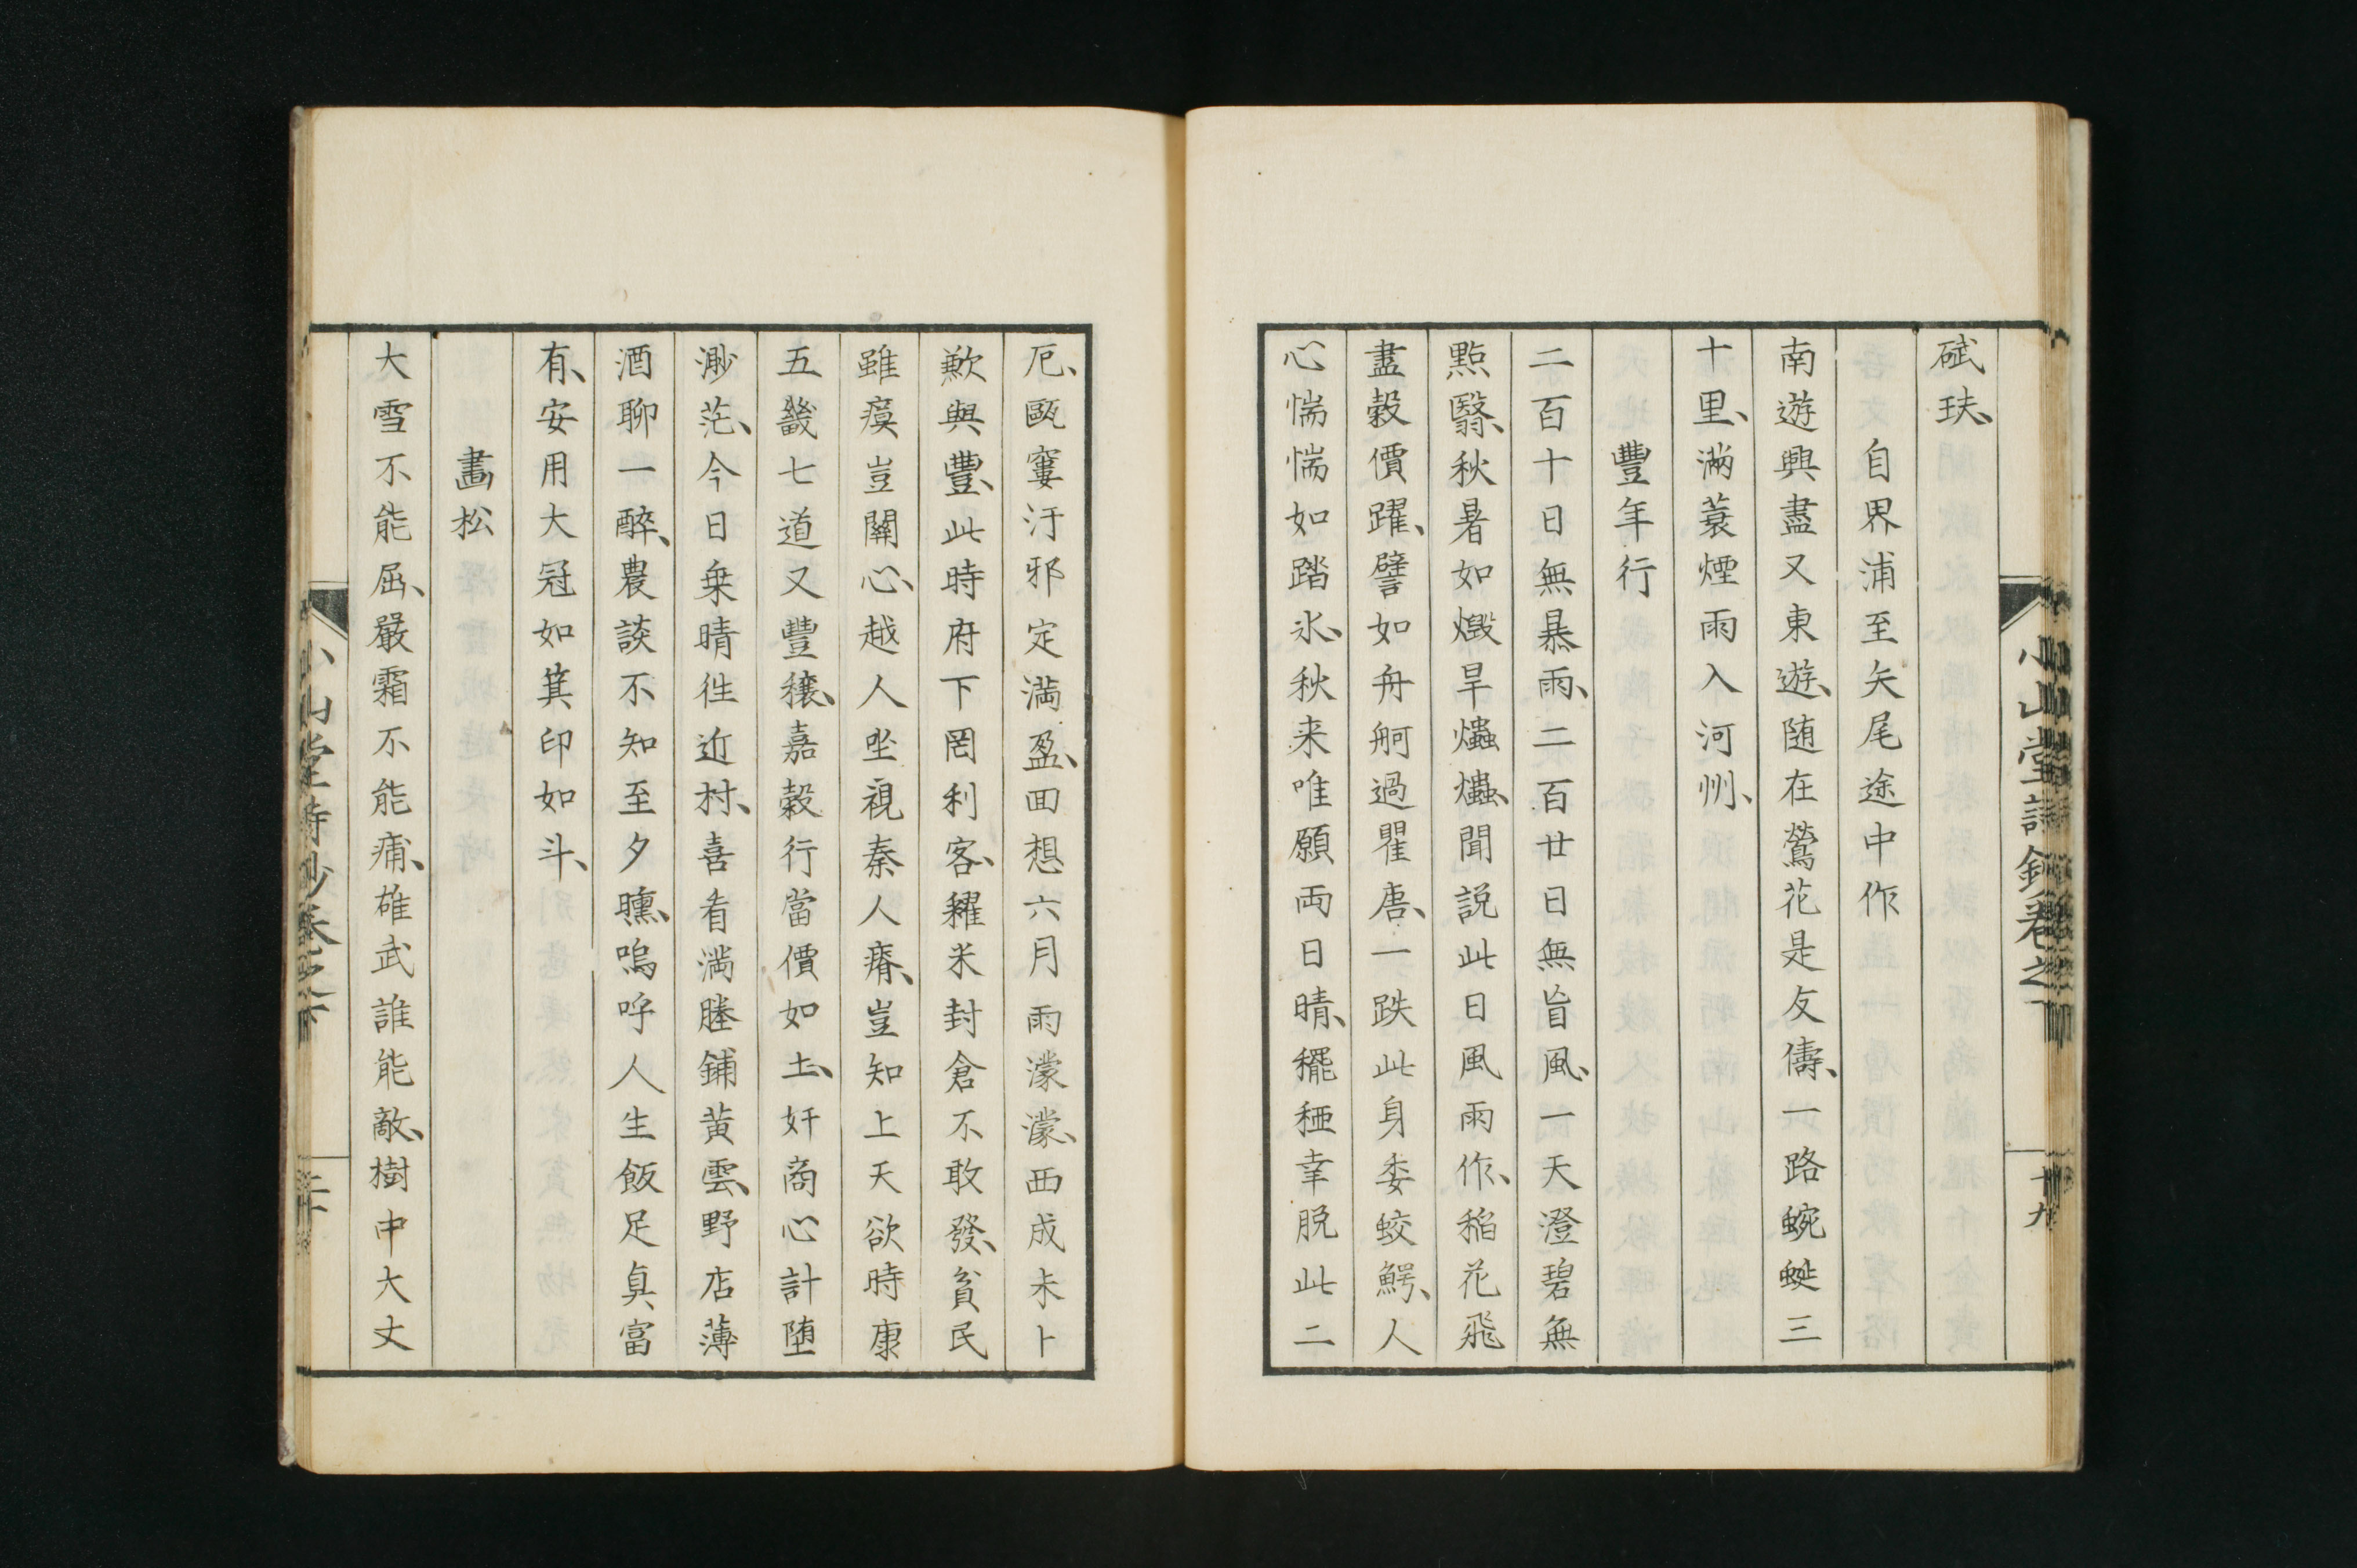 碔玞、
自界浦至矢尾途中作
南遊興盡又東遊、随在鶯花是友儔、一路蜿蜒三
十里、滿蓑煙雨入河州、
豐年行
二百十日無暴雨、二百廿日無盲風、一天澄碧無
點翳、秋暑如燬旱爞爞、聞説此日風雨作、稻花飛
盡穀價躍、譬如舟舸過瞿唐、一跌此身委蛟鰐、人
心惴惴如踏氷、秋来唯願両日晴、䆉稏幸脱此二
厄、甌窶汙邪定満盈、回想六月雨濛濛、西成未卜
歉與豐、此時府下罔利客、糴米封倉不敢發、貧民
雖瘼豈關心、越人坐視秦人瘠、豈知上天欲時康
五畿七道又豐穰、嘉穀行當價如土、奸商心計堕
渺茫、今日乗晴徃近村、喜看満塍鋪黄雲、野店薄
酒聊一醉、農談不知至夕曛、嗚呼人生飯足真富
有、安用大冠如箕印如斗、
畫松
大雪不能屈、嚴霜不能痡、雄武誰能敵、樹中大丈
小山堂詩鈔卷之下
十九